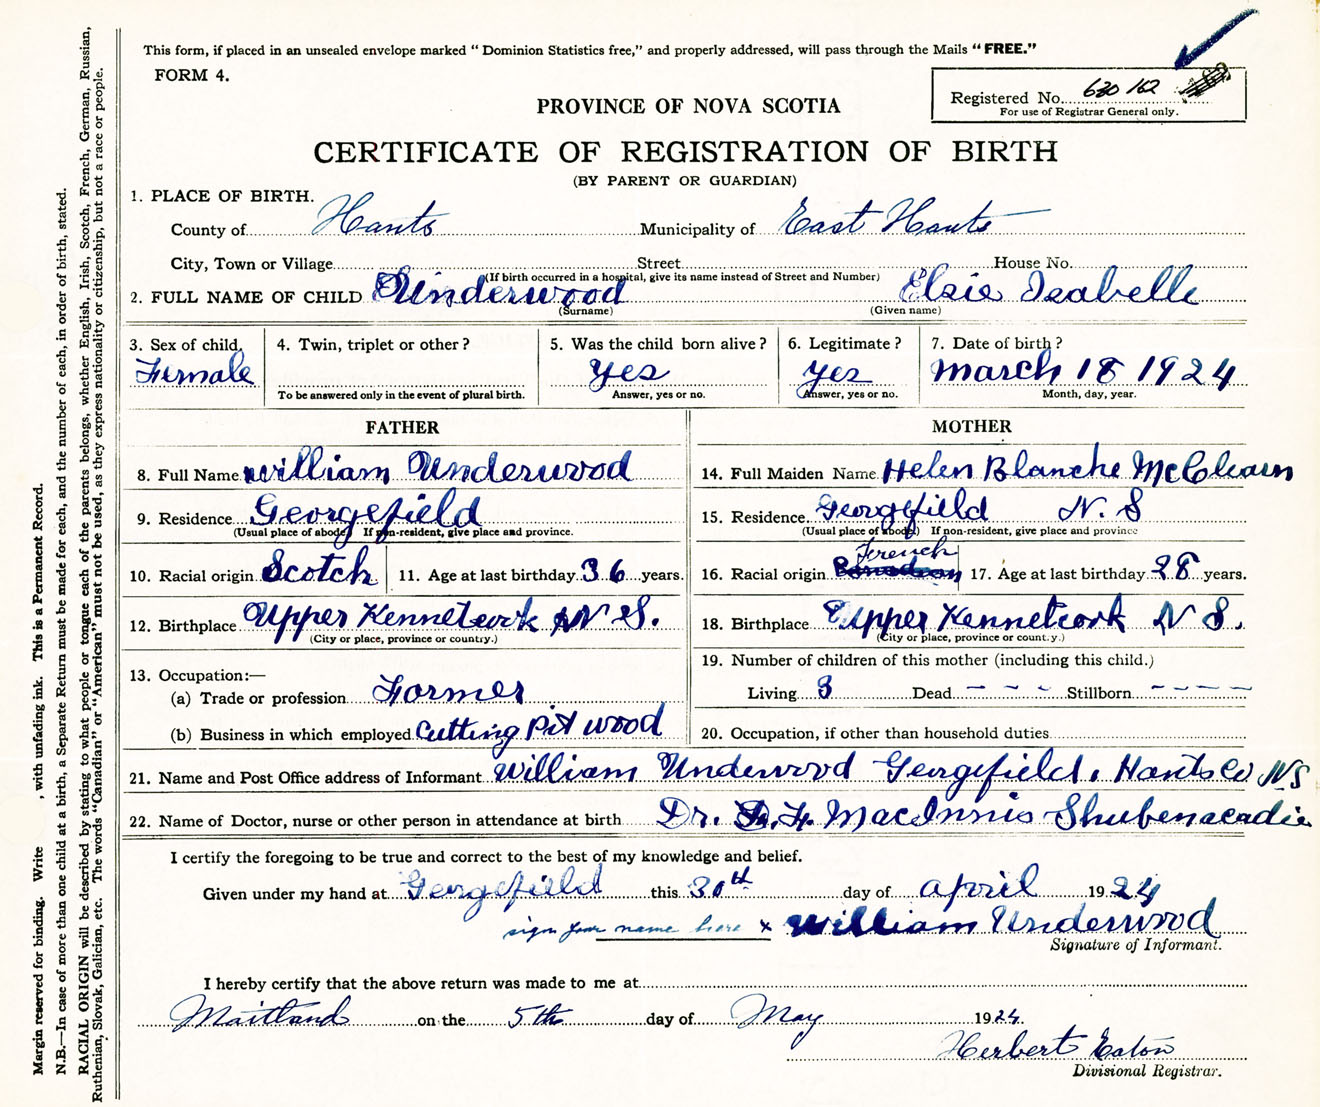 This form, if placed in an unsealed envelope marked "Dominion Statistics free," and properly addressed, will pass through the Mails "FREE."
FORM 4.
Registered No. 630 162
For use of Registrar General only.
PROVINCE OF NOVA SCOTIA
CERTIFICATE OF REGISTRATION OF BIRTH
(BY PARENT OR GUARDIAN)
1. PLACE OF BIRTH.
County of Hants Municipality of East Hants
City, Town or Village Street House No.
(If birth occurred in a hospital, give its name instead of Street and Number)
2. FULL NAME OF CHILD Underwood Elsie Isabelle
(Surname) (Given name)
3. Sex of child. 4. Twin, triplet or other? 5. Was the child born alive? 6. Legitimate? 7. Date of birth?
Female yes yes march 18 1924
To be answered only in the event of plural birth. Answer, yes or no. Answer, yes or no. Month, day, year.
FATHER MOTHER
8. Full Name william Underwood 14. Full Maiden Name Helen Blanche McClearn
9. Residence Georgefield 15. Residence Georgefield N. S
(Usual place of abode) If non-resident, give place and province. (Usual place of abode) If non-resident, give place and province
French
10. Racial origin Scotch 11. Age at last birthday 36 years. 16. Racial origin Canadian 17. Age at last birthday 28 years.
12. Birthplace Upper Kennetcook N S. 18. Birthplace Upper Kennetcook N S.
(City or place, province or country.) (City or place, province or count.y.)
13. Occupation:— 19. Number of children of this mother (including this child.)
(a) Trade or profession Farmer Living 3 Dead - - - - Stillborn - - - - -
(b) Business in which employed Cutting Pit wood 20. Occupation, if other than household duties
21. Name and Post Office address of Informant William Underwood Georgefield, Hants Co NS
22. Name of Doctor, nurse or other person in attendance at birth Dr. F. MacInnis Shubenacadie
I certify the foregoing to be true and correct to the best of my knowledge and belief.
Given under my hand at Georgefield this 30th day of april 1924
sign your name here x William Underwood
Signature of Informant.
I hereby certify that the above return was made to me at
Maitland on the 5th day of May 1924.
Herbert Eaton
Divisional Registrar.
Margin reserved for binding. Write , with unfading ink. This is a Permanent Record.
N.B.—In case of more than one child at a birth, a Separate Return must be made for each, and the number of each, in order of birth, stated.
RACIAL ORIGIN will be described by stating to what people or tongue each of the parents belongs, whether English, Irish, Scotch, French, German, Russian,
Ruthenian, Slovak, Galician, etc. The words "Canadian" or "American" must not be used, as they express nationality or citizenship, but not a race or people.